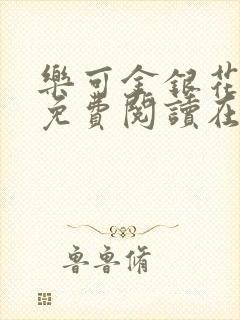 樂可金銀花
免費閱讀在
魯魯脩